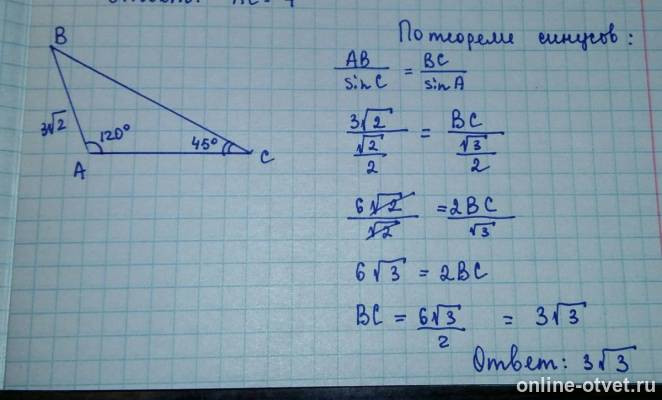 АС = 4
B
3√2
120°
45°
A
C
По теореме синусов:
AB/sin C = BC/sin A
3√2/(√2/2) = BC/(√3/2)
6√2/√2 = 2BC/√3
6√3 = 2BC
BC = 6√3/2 = 3√3
Ответ: 3√3
online-otvet.ru